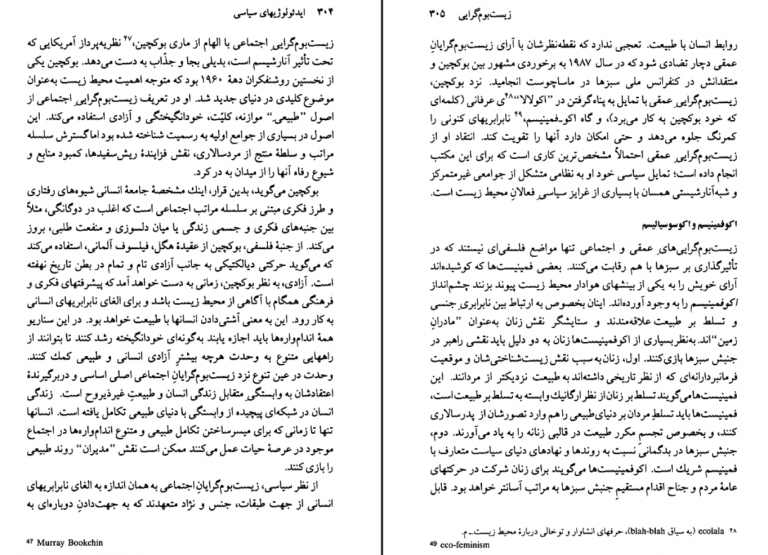 ۳۰۴ ایدئولوژیهای سیاسی
زیست‌بوم‌گراییِ اجتماعی با الهام از ماری بوکچین،۴۷ نظریه‌پرداز آمریکایی که
تحت تأثیر آنارشیسم است، بدیلی بجا و جذّاب به دست می‌دهد. بوکچین یکی
از نخستین روشنفکران دههٔ ۱۹۶۰ بود که متوجه اهمیت محیط زیست به‌عنوان
موضوع کلیدی در دنیای جدید شد. او در تعریف زیست‌بوم‌گرایی اجتماعی از
اصول "طبیعیِ" موازنه، کلیّت، خودانگیختگی و آزادی استفاده می‌کند. این
اصول در بسیاری از جوامع اولیه به رسمیت شناخته شده بود اما گسترش سلسله
مراتب و سلطهٔ منتج از مردسالاری، نقش فزایندهٔ ریش‌سفیدها، کمبود منابع و
شیوع رفاه آنها را از میدان به در کرد.
بوکچین می‌گوید، بدین قرار، اینك مشخصهٔ جامعهٔ انسانی شیوه‌های رفتاری
و طرز فکری مبتنی بر سلسله مراتب اجتماعی است که اغلب در دوگانگی، مثلاً
بین جنبه‌های فکری و جسمی زندگی یا میان دلسوزی و منفعت طلبی، بروز
می‌کند. از جنبهٔ فلسفی، بوکچین از عقیدهٔ هگل، فیلسوف آلمانی، استفاده می‌کند
که می‌گوید حرکتی دیالکتیکی به جانب آزادی تام و تمام در بطن تاریخ نهفته
است. آزادی، به نظر بوکچین، زمانی به دست خواهد آمد که پیشرفتهای فکری و
فرهنگی همگام با آگاهی از محیط زیست باشد و برای الغای نابرابریهای انسانی
به کار رود. این به معنی آشتی‌دادن انسانها با طبیعت خواهد بود. در این سناریو
همهٔ اندام‌واره‌ها باید اجازه یابند به‌گونه‌ای خودانگیخته رشد کنند تا بتوانند از
راههایی متنوع به وحدت هرچه بیشترِ آزادی انسانی و طبیعی کمك کنند.
وحدت در عین تنوع نزد زیست‌بوم‌گرایانِ اجتماعی اصلی اساسی و دربرگیرندهٔ
اعتقادشان به وابستگیِ متقابل زندگی انسان و طبیعتِ غیرذیروح است. زندگی
انسان در شبکه‌ای پیچیده از وابستگی با دنیای طبیعی تکامل یافته است. انسانها
تنها تا زمانی که برای میسرساختن تکامل طبیعی و متنوع اندام‌واره‌ها در اجتماع
موجود در عرصهٔ حیات عمل می‌کنند ممکن است نقش "مدیران" روند طبیعی
را بازی کنند.
از نظر سیاسی، زیست‌بوم‌گرایانِ اجتماعی به همان اندازه به الغای نابرابریهای
انسانی از جهت طبقات، جنس و نژاد متعهدند که به جهت‌دادن دوباره‌ای به
47 Murray Bookchin
زیست‌بوم‌گرایی ۳۰۵
روابط انسان با طبیعت. تعجبی ندارد که نقطه‌نظرشان با آرای زیست‌بوم‌گرایانِ
عمقی دچار تضادی شود که در سال ۱۹۸۷ به برخوردی مشهور بین بوکچین و
منتقدانش در کنفرانس ملی سبزها در ماساچوست انجامید. نزد بوکچین،
زیست‌بوم‌گراییِ عمقی با تمایل به پناه‌گرفتن در "اکولالا"۴۸ی عرفانی (کلمه‌ای
که خود بوکچین به کار می‌برد)، و گاه اکو‌ـ‌فمینیسم،۴۹ نابرابریهای کنونی را
کمرنگ جلوه می‌دهد و حتی امکان دارد آنها را تقویت کند. انتقاد او از
زیست‌بوم‌گراییِ عمقی احتمالاً مشخص‌ترین کاری است که برای این مکتب
انجام داده است؛ تمایل سیاسی خود او به نظامی متشکل از جوامعی غیرمتمرکز
و شبه‌آنارشیستی همسان با بسیاری از غرایز سیاسیِ فعالانِ محیط زیست است.
اکوفمینیسم و اکوسوسیالیسم
زیست‌بوم‌گرایی‌هایِ عمقی و اجتماعی تنها مواضع فلسفی‌ای نیستند که در
تأثیرگذاری بر سبزها با هم رقابت می‌کنند. بعضی فمینیست‌ها که کوشیده‌اند
آرای خویش را به یکی از بینشهای هوادار محیط زیست پیوند بزنند چشم‌انداز
اکوفمینیسم را به وجود آورده‌اند. اینان بخصوص به ارتباط بین نابرابریِ جنسی
و تسلط بر طبیعت علاقه‌مندند و ستایشگر نقش زنان به‌عنوان "مادرانِ
زمین"اند. به‌نظر بسیاری از اکوفمینیست‌ها زنان به دو دلیل باید نقشی راهبر در
جنبش سبزها بازی‌کنند. اول، زنان به سبب نقش زیست‌شناختی‌شان و موقعیت
فرمانبردارانه‌ای که از نظر تاریخی داشته‌اند به طبیعت نزدیکتر از مردانند. این
فمینیست‌ها می‌گویند تسلط بر زنان از نظر ارگانیك وابسته به تسلط بر طبیعت است،
فمینیست‌ها باید تسلطِ مردان بر دنیای‌طبیعی را هم وارد تصورشان از پدرسالاری
کنند، و بخصوص تجسمِ مکرر طبیعت در قالبی زنانه را به یاد می‌آورند. دوم،
جنبش سبزها در بدگمانی نسبت به روندها و نهادهای دنیای سیاست متعارف با
فمینیسم شریك است. اکوفمینیست‌ها می‌گویند برای زنان شرکت در حرکتهای
عامهٔ مردم و جناح اقدام مستقیمِ جنبش سبزها به مراتب آسانتر خواهد بود. قابل
۴۸ ecolala (به سیاق blah-blah)، حرفهای انشاوار و توخالی دربارهٔ محیط زیست‌ـ‌م.
49 eco-feminism